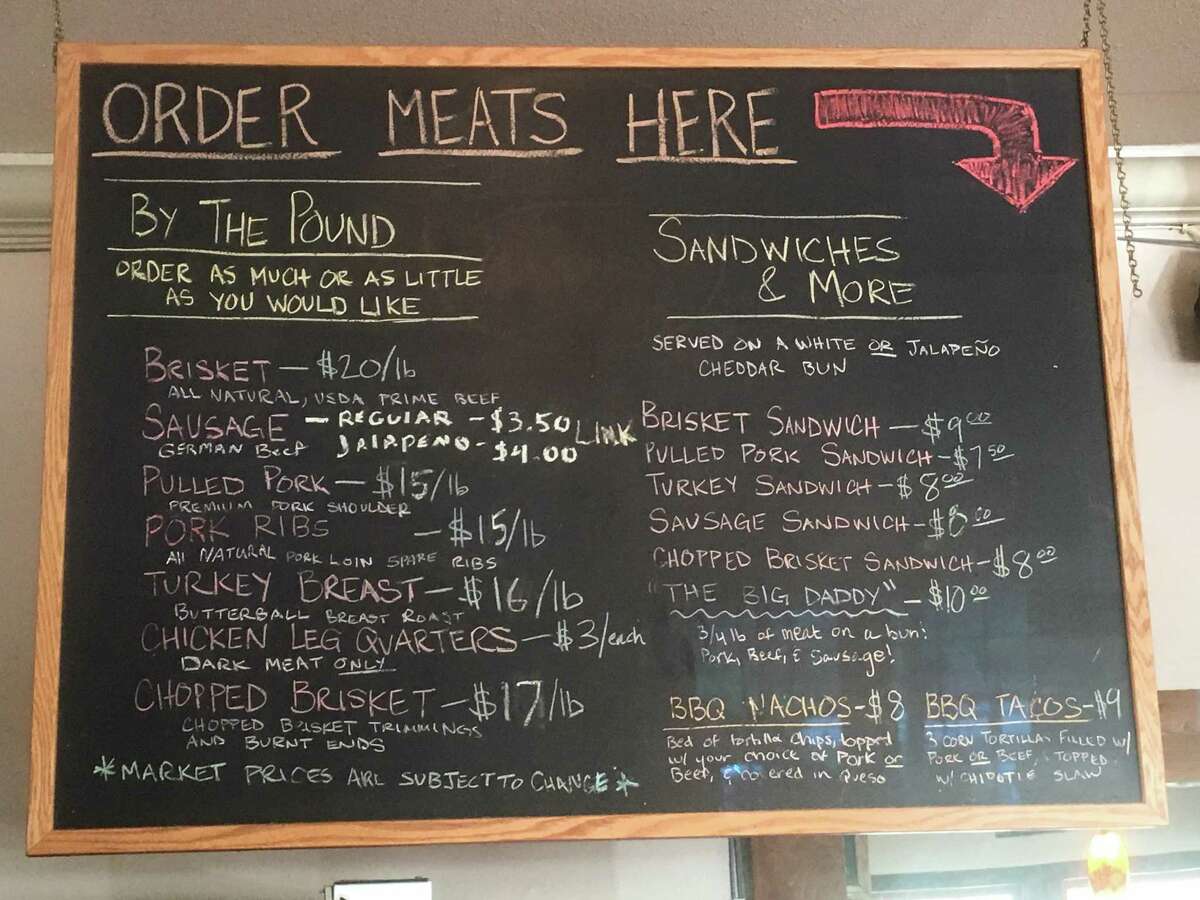 ORDER MEATS HERE
BY THE POUND
ORDER AS MUCH OR AS LITTLE
AS YOU WOULD LIKE
BRISKET - $20/lb
ALL NATURAL, USDA PRIME BEEF
SAUSAGE - REGULAR - $3.50 LINK
GERMAN BEEF JALAPENO - $4.00
PULLED PORK - $15/lb
PREMIUM PORK SHOULDER
PORK RIBS - $15/lb
All NATURAL PORK LOIN SPARE RIBS
TURKEY BREAST - $16/lb
BUTTERBALL BREAST ROAST
CHICKEN LEG QUARTERS - $3/each
DARK MEAT ONLY
CHOPPED BRISKET - $17/lb
CHOPPED BRISKET TRIMMINGS
AND BURNT ENDS
*MARKET PRICES ARE SUBJECT TO CHANGE*
SANDWICHES
& MORE
SERVED ON A WHITE OR JALAPEÑO
CHEDDAR BUN
BRISKET SANDWICH - $9.00
PULLED PORK SANDWICH - $7.50
TURKEY SANDWICH - $8.00
SAUSAGE SANDWICH - $8.00
CHOPPED BRISKET SANDWICH - $8.00
"THE BIG DADDY" - $10.00
3/4 lb of meat on a bun:
Pork, Beef, & Sausage!
BBQ NACHOS - $8
Bed of tortilla chips, topped
w/ your choice of Pork or
Beef, & covered in Queso
BBQ TACOS - $9
3 CORN TORTILLAS FILLED w/
PORK OR BEEF, & TOPPED
w/ CHIPOTLE SLAW